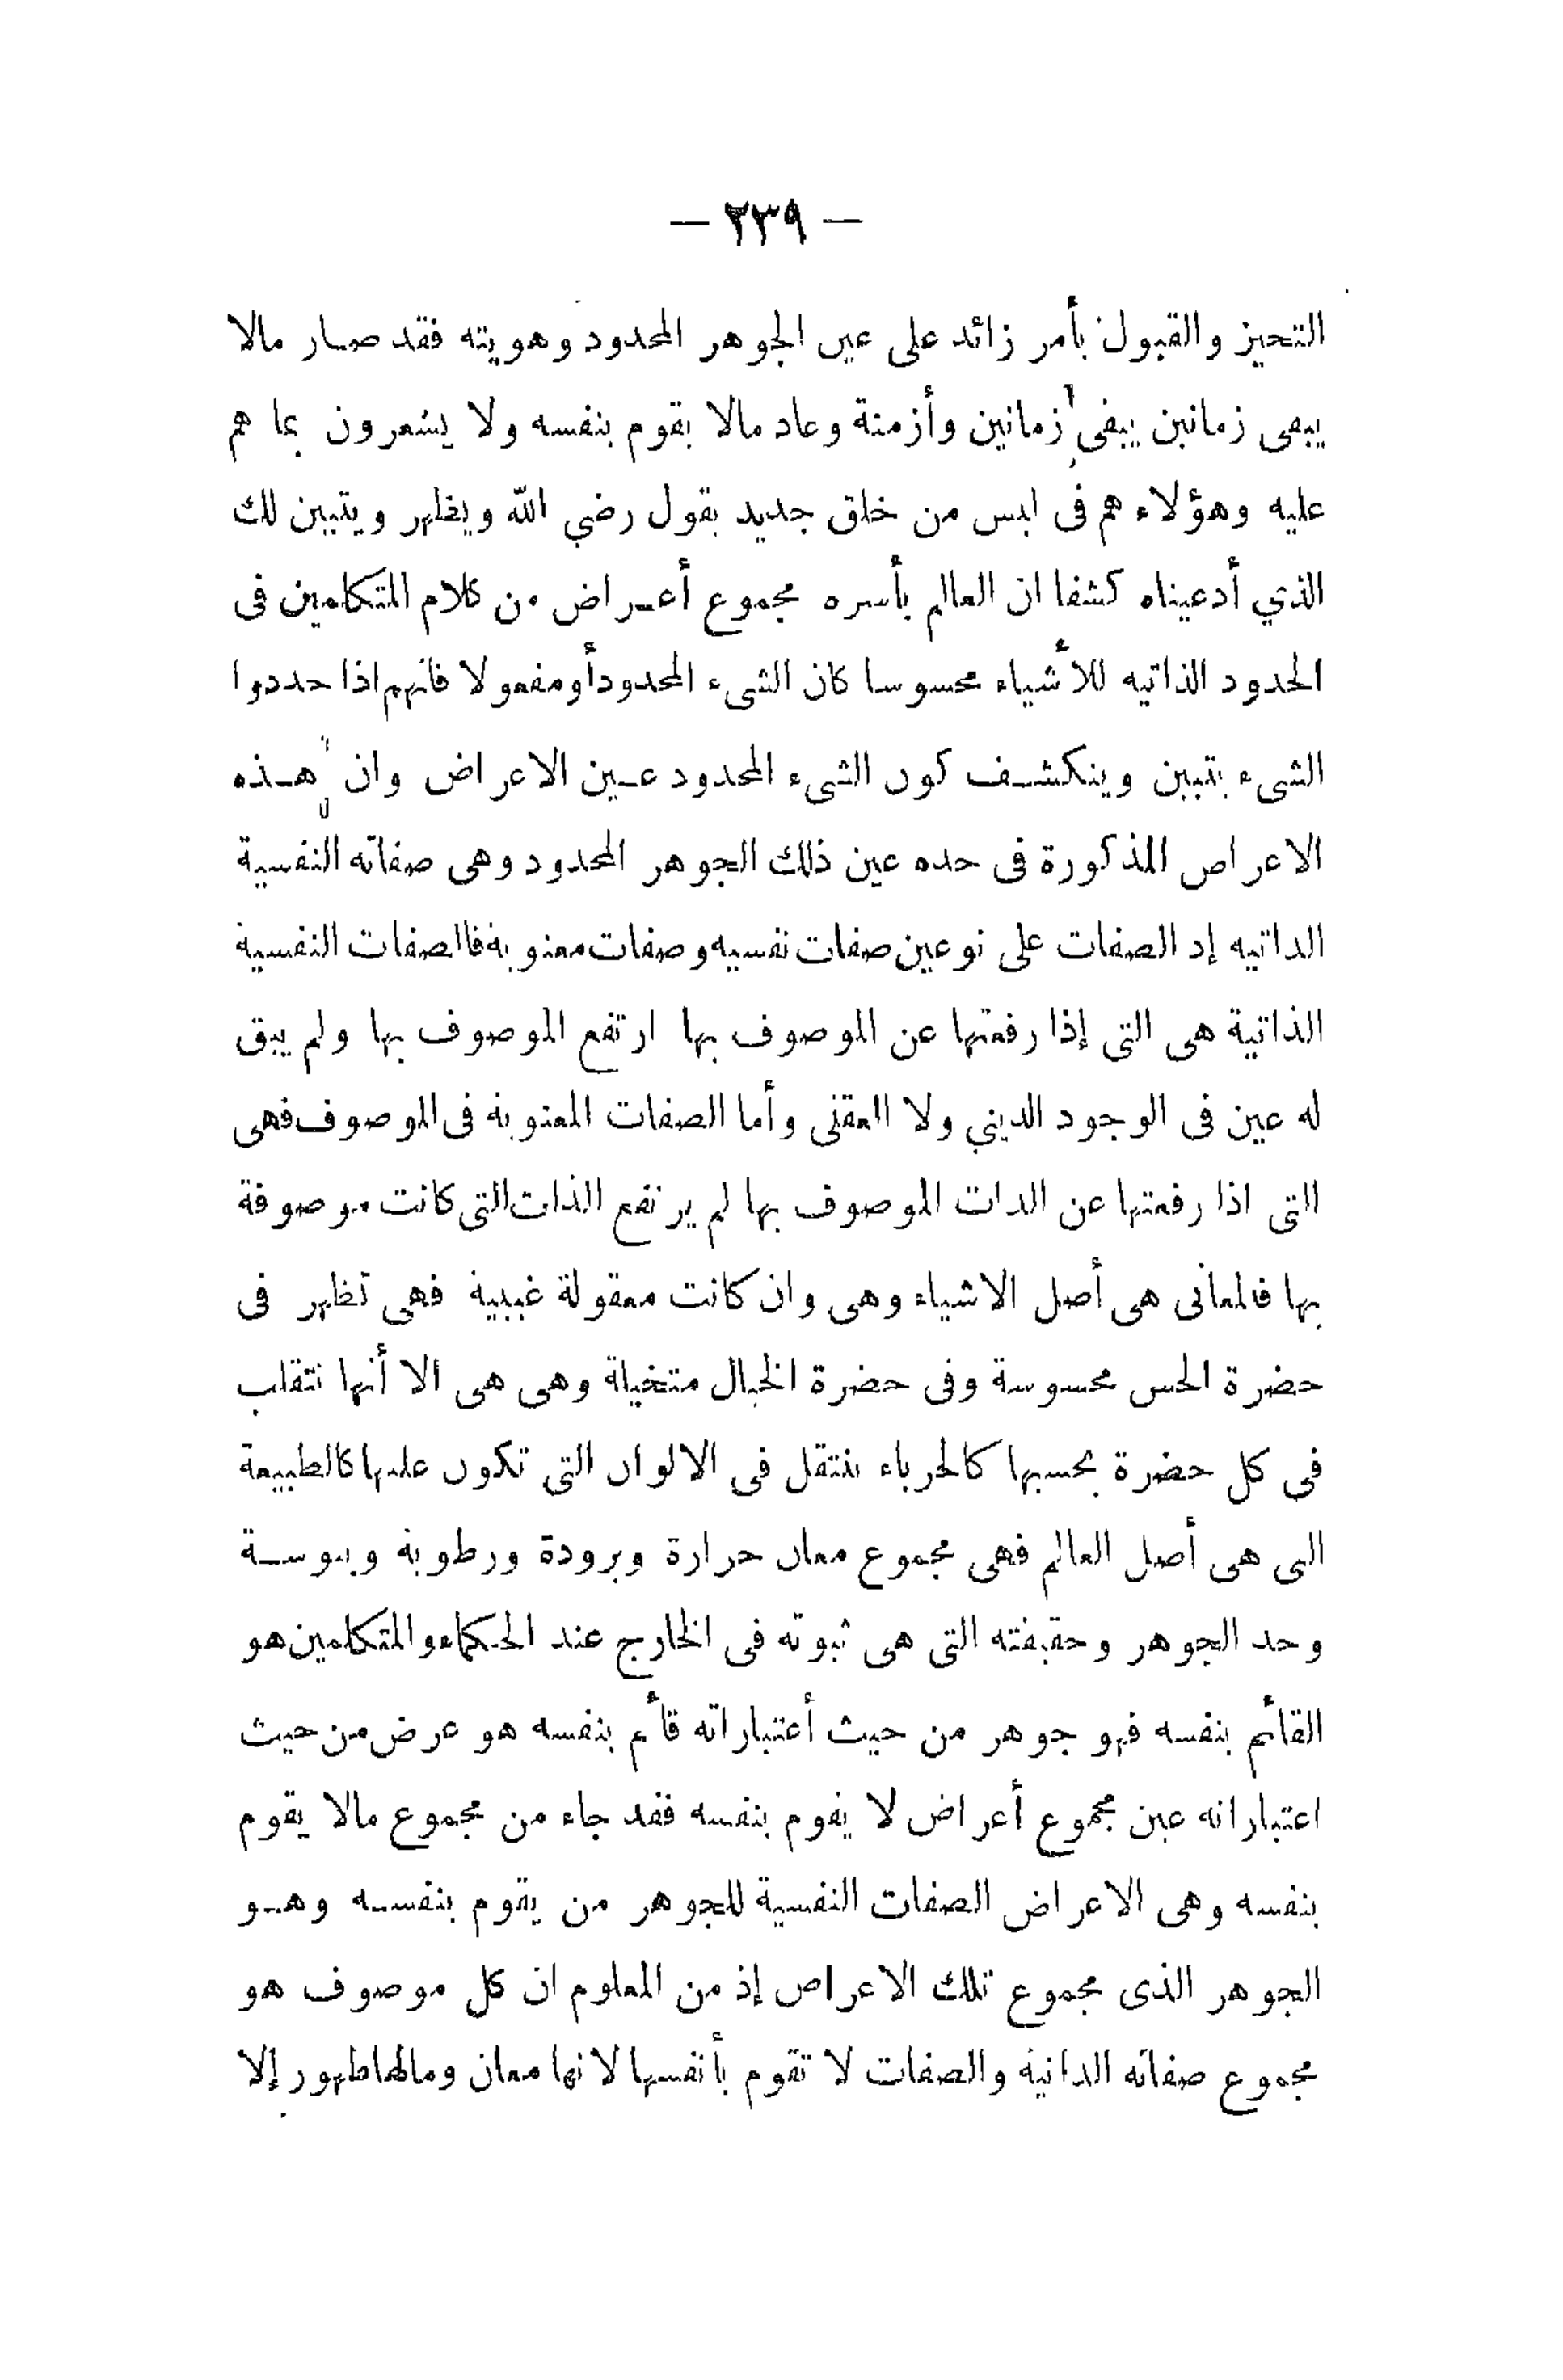 — ٢٣٩ —
التحيز والقبول بأمر زائد على عين الجوهر المحدود وهويته فقد صار مالا
يبقى زمانين يبقى زمانين وأزمنة وعاد مالا يقوم بنفسه ولا يشعرون بما هم
عليه وهؤلاء هم فى لبس من خلق جديد يقول رضي الله ويظهر ويتبين لك
الذي أدعيناه كشفا ان العالم بأسره مجموع أعراض من كلام المتكلمين فى
الحدود الذاتيه للأشياء محسوسا كان الشىء المحدود أو مفعولا فانهم اذا حددوا
الشىء يتبين وينكشف كون الشىء المحدود عين الاعراض وان هذه
الاعراض المذكورة فى حده عين ذلك الجوهر المحدود وهى صفاته النفسية
الذاتيه إذ الصفات على نوعين صفات نفسيه وصفات معنوية فالصفات النفسية
الذاتية هى التى إذا رفعتها عن الموصوف بها ارتفع الموصوف بها ولم يبق
له عين فى الوجود الديني ولا العقلى وأما الصفات المعنوية فى الموصوف فهى
التى اذا رفعتها عن الذات الموصوف بها لم يرتفع الذات التى كانت موصوفة
بها فالمعانى هى أصل الاشياء وهى وان كانت معقولة غيبية فهى تظهر فى
حضرة الحس محسوسة وفى حضرة الخيال متخيلة وهى هى الا أنها تتقلب
فى كل حضرة بحسبها كالحرباء تنتقل فى الالوان التى تكون عليها كالطبيعة
التى هى أصل العالم فهى مجموع معان حرارة وبرودة ورطوبة ويبوسة
وحد الجوهر وحقيقته التى هى ثبوته فى الخارج عند الحكماء والمتكلمين هو
القائم بنفسه فهو جوهر من حيث أعتباراته قائم بنفسه هو عرض من حيث
اعتباراته عين مجموع أعراض لا يقوم بنفسه فقد جاء من مجموع مالا يقوم
بنفسه وهى الاعراض الصفات النفسية للجوهر من يقوم بنفسه وهو
الجوهر الذى مجموع تلك الاعراض إذ من المعلوم ان كل موصوف هو
مجموع صفاته الذاتية والصفات لا تقوم بأنفسها لانها معان ومالها ظهور إلا